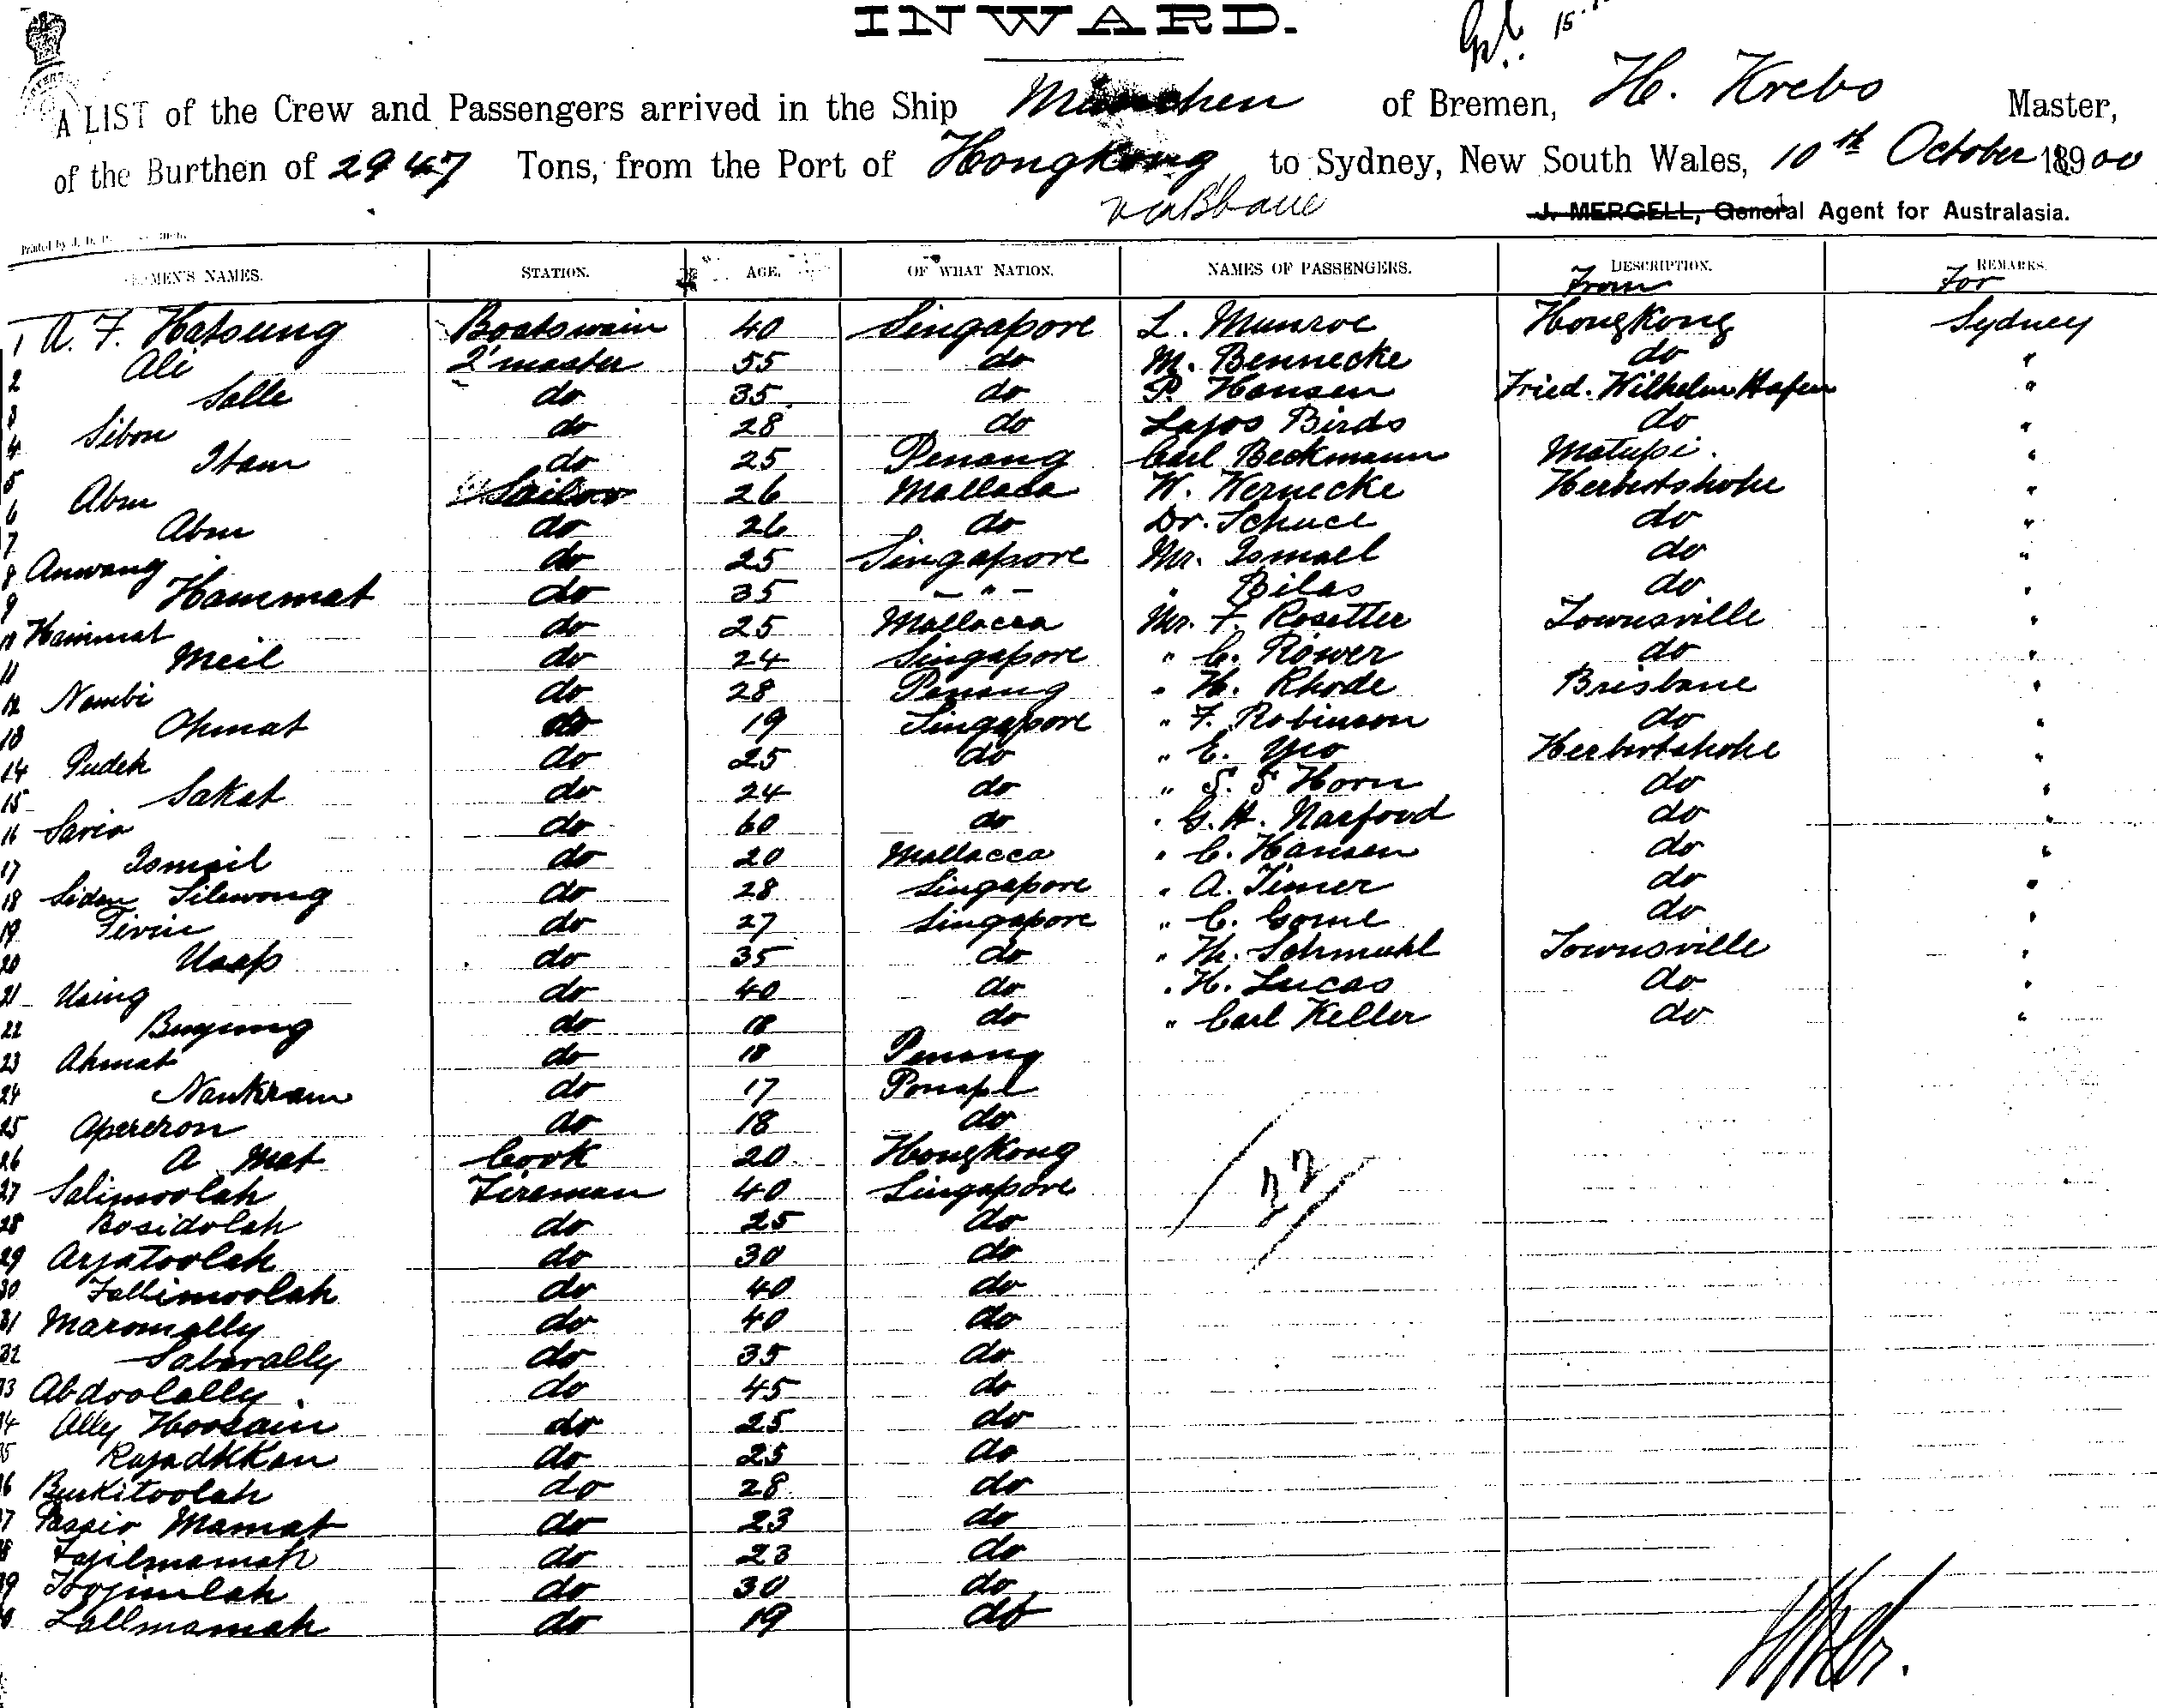 INWARD.
A LIST of the Crew and Passengers arrived in the Ship München of Bremen, H. Krebs Master,
of the Burthen of 2947 Tons, from the Port of Hongkong to Sydney, New South Wales, 10th October 1900
via B'bane
J. MERGELL, General Agent for Australasia.
NAMES. STATION. AGE. OF WHAT NATION. NAMES OF PASSENGERS. DESCRIPTION. REMARKS.
From For
1 A. F. Hatsung Boatswain 40 Singapore L. Munroe Hongkong Sydney
2 Ali Q'master 55 do M. Bennecke do "
3 Salle do 35 do P. Hansen Fried. Wilhelm Hafen "
4 Sibon do 28 do Lajos Birds do "
5 Itam do 25 Penang Carl Beckmann Matupi. "
6 Abm Sailor 26 Mallaca W. Wernecke Herbertshohe "
7 Abm do 26 do Dr. Schuce do "
8 Anwang do 25 Singapore Mr. Ismael do "
9 Hammat do 35 - " - " Bilas do "
10 Hammat do 25 Mallacca Mr. F. Rosetter Townsville "
11 Meil do 24 Singapore " C. Rower do "
12 Nambi do 28 Penang " H. Rhode Brisbane "
13 Ahmat do 19 Singapore " F. Robinson do "
14 Pudeh do 25 do " E. Herbertshohe "
15 Sakat do 24 do " S. S Horn do "
16 do 60 do " G. H. Narford do "
17 Ismail do 20 Mallacca " C. Hansen do "
18 Sidan Silewong do 28 Singapore " A. do "
19 do 27 Singapore " C. do "
20 Usap do 35 do " Th. Schmuhl Townsville "
21 Using do 40 do " H. Lucas do "
22 Buyung do 18 do " Carl Keller do "
23 Ahmat do 18 Penang
24 Nankram do 17 Ponape
25 Apereron do 18 do
26 A Mat Cook 20 Hongkong
27 Salimoolah Fireman 40 Singapore
28 Bosidolah do 25 do
29 Arjatoolah do 30 do
30 Fallimoolah do 40 do
31 Maromally do 40 do
32 Saberally do 35 do
33 Abdoolally do 45 do
34 Ally Hoosain do 25 do
35 do 25 do
36 Burkitoolah do 28 do
37 Mamat do 23 do
38 Fajilmamah do 23 do
39 do 30 do
40 Lallmamah do 19 do
22